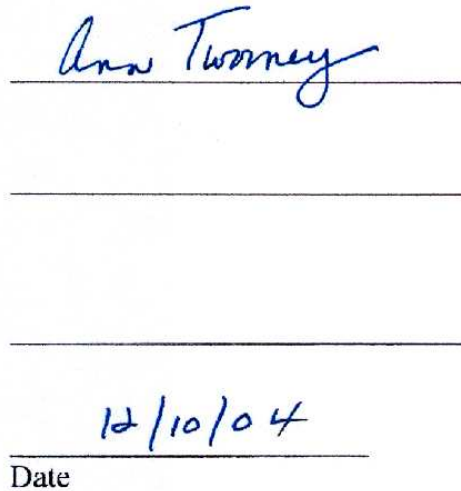 Ann Twomey
12/10/04
Date